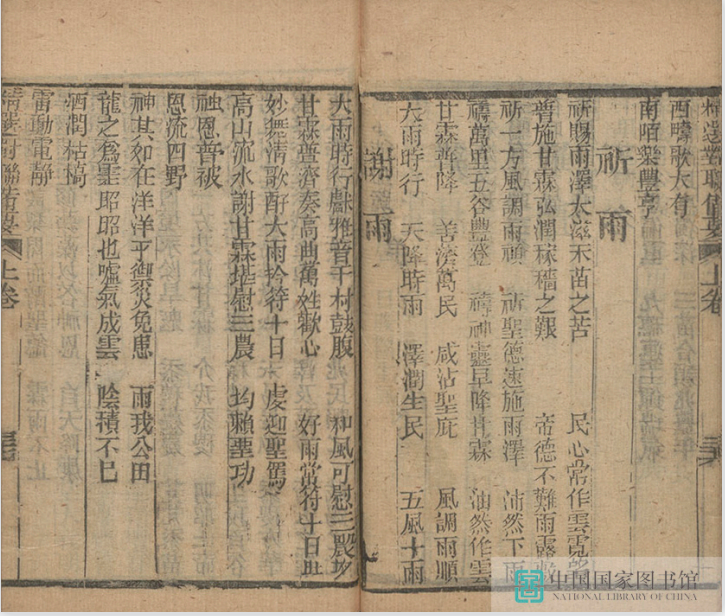 對聯備要 上卷
西疇歌大有
南陌樂豐亨
祈雨
祈賜雨澤大滋禾苗之苦 民心常作雲霓
普施甘霖弘潤稼穡之艱 帝德不難雨露
祈一方風調雨順 祈聖德速施雨澤 沛然下雨
禱萬里五谷豐登 禱神靈早降甘霖 油然作雲
甘霖普降 善濟萬民 咸沾聖庇 風調雨順
大雨時行 天降時雨 澤潤生民 五風十雨
謝雨
大雨時行獻雅音千村鼓腹 和風可慰三農
甘霖普濟奏高曲萬姓歡心 好雨常符十日
妙舞清歌酧大雨矜符十日 虔迎聖駕
高山流水謝甘霖堪慰三農 均賴聖功
祂恩普被
恩流四野
神其如在洋洋乎禦災免患 雨我公田
龍之為靈昭昭也噓氣成雲 陰積不已
洒潤枯槁
雷動電靜
對聯備要 上卷
中国国家图书馆
NATIONAL LIBRARY OF CHINA